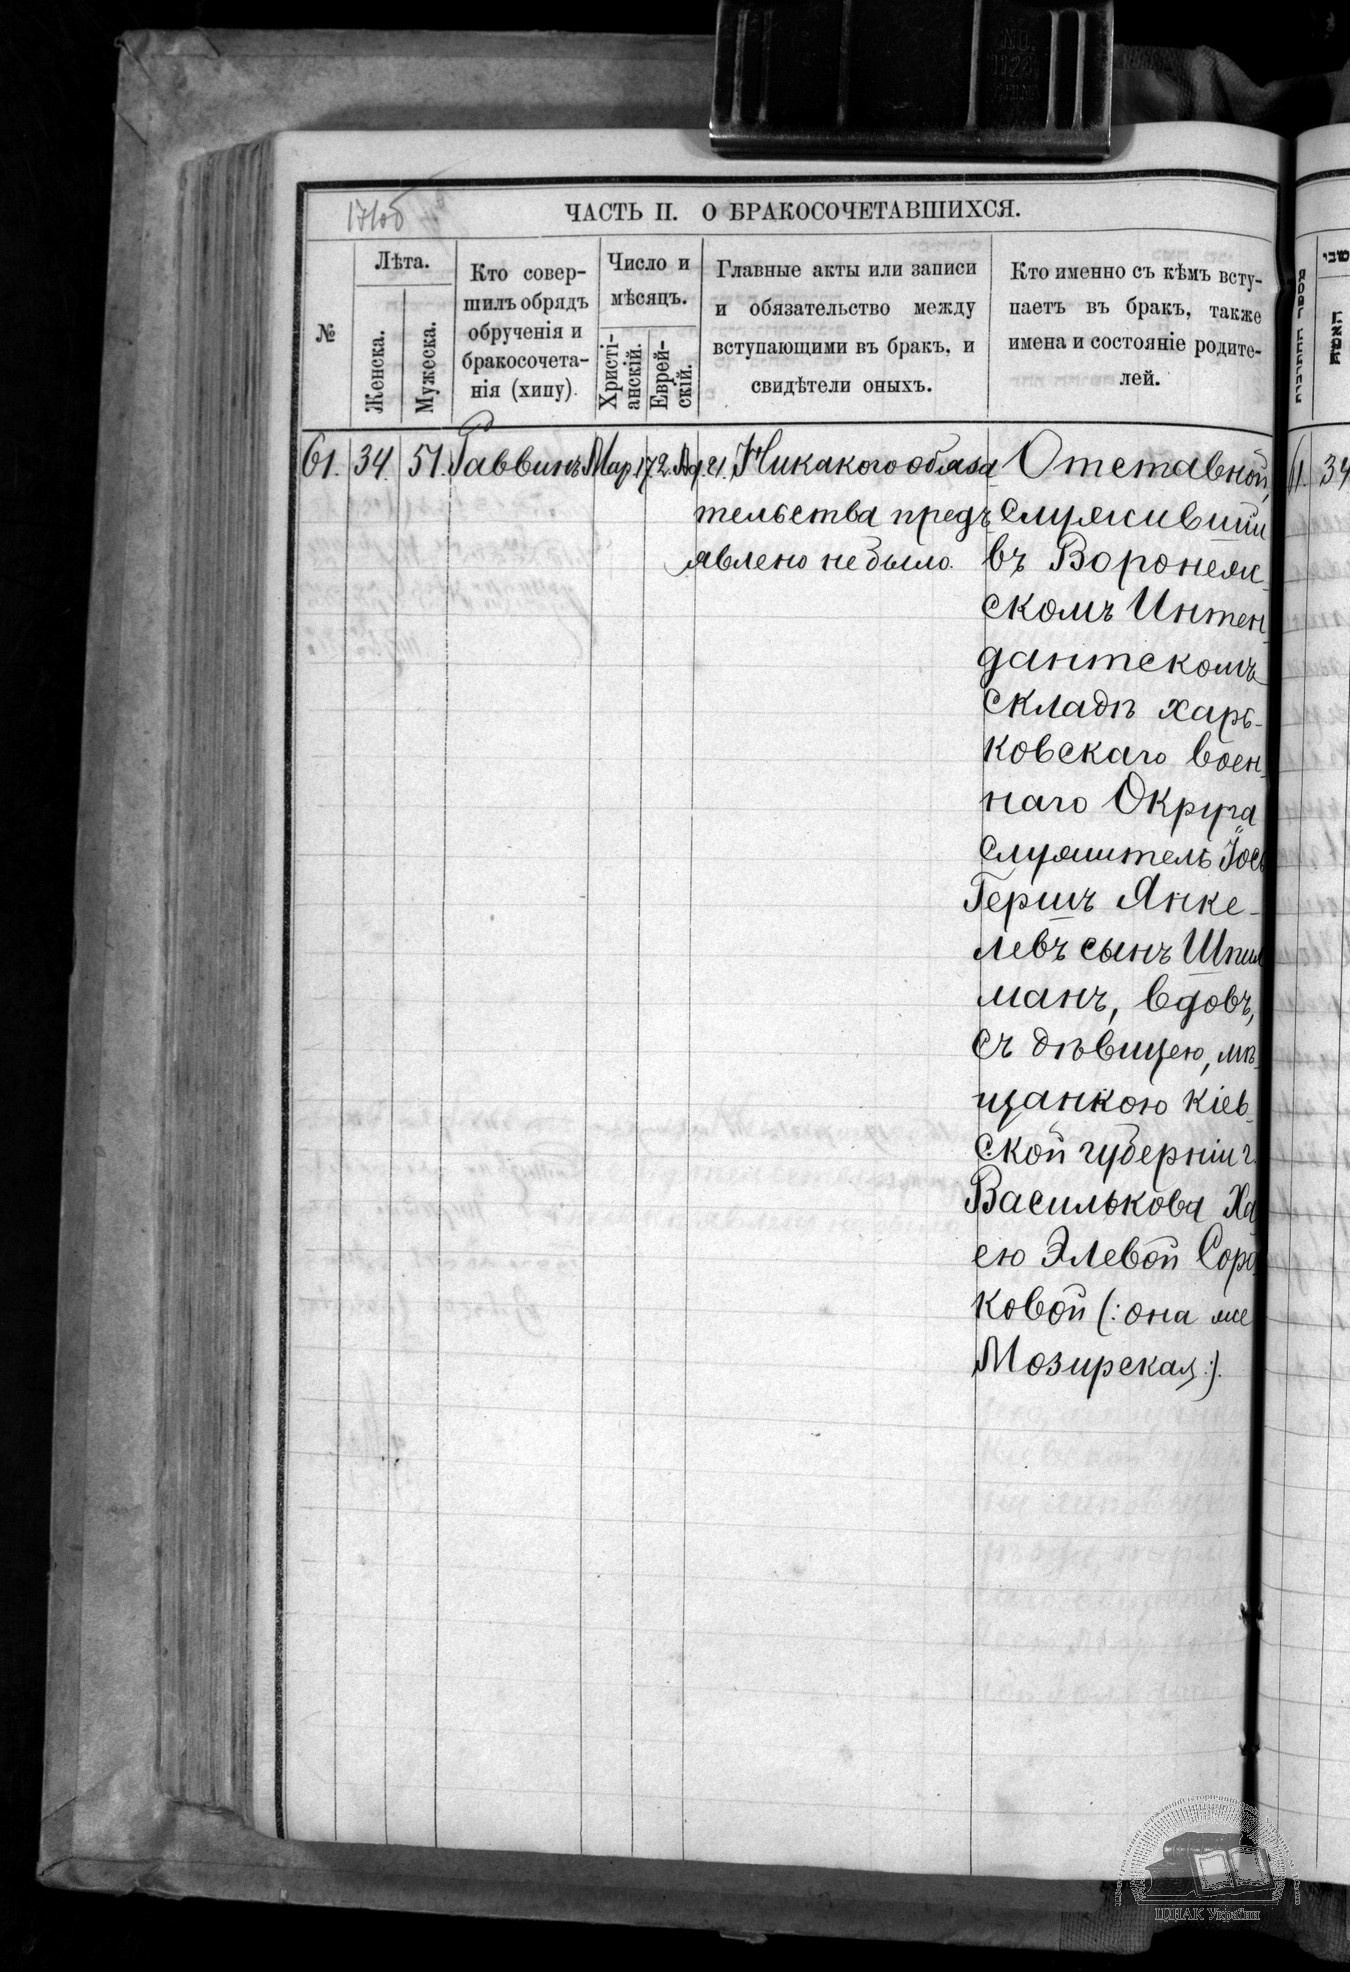 171об
ЧАСТЬ II. О БРАКОСОЧЕТАВШИХСЯ.
№
Лѣта.
Женска.
Мужеска.
Кто совер-
шилъ обрядъ
обрученія и
бракосочета-
нія (хипу).
Число и
мѣсяцъ.
Христі-
анскій.
Еврей-
скій.
Главные акты или записи
и обязательство между
вступающими въ бракъ, и
свидѣтели оныхъ.
Кто именно съ кѣмъ всту-
паетъ въ бракъ, также
имена и состояніе родите-
лей.
61. 34. 51. Раввинъ Мар. 17. 2. Ад. 21. Никакого обяза
тельства предъ
явлено не было.
Отставной,
служившій
въ Воронеж
скомъ Интен
дантскомъ
складѣ харь-
ковскаго воен
наго Округа
служитель Іось
Гершъ Янке-
левъ сынъ Шпил
манъ, вдовъ,
съ дѣвицею, мѣ-
щанкою Кіев-
ской губерніи г.
Василькова Ха
ею Элевой Соро
ковой (: она же
Мозирская :).
מספר החתונות
שני
האשה
61. 34
NO.
1123
ЦДІАК України